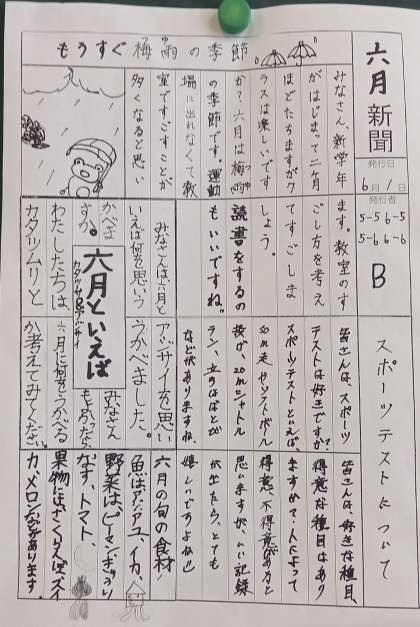 もうすぐ梅雨の季節
六月新聞
発行日
6月1日
発行者
5-5 6-5
5-6 6-6
B
みなさん、新学年
がはじまって二ヶ月
ほどたちますがク
ラスは楽しいです
か?六月は梅雨
の季節です。運動
場に出れなくて教
室ですごすことが
多くなると思い
ます。教室のす
ごし方を考え
てすごしま
しょう。
読書をするの
もいいですね。
スポーツテストについて
皆さんは、スポーツ
テストは好きですか?
スポーツテストといえば、
50m走やソフトボール
投げ、20mシャトル
ラン、立ちはばとび
などがありますね。
皆さんは、好きな種目、
得意な種目はあり
ますか?人によって
得意、不得意があると
思いますが、いい記録
が出たら、とても
嬉しいですよね!!
六月といえば
カタツムリ&アジサイ
みなさんは六月と
いえば何を思いう
かべま
すか。
わたしたちは、
カタツムリと
アジサイを思い
うかべました。
みなさん
もよかったら
六月に何をうかべる
か考えてみてください。
六月の旬の食材!
魚はアジ、アユ、イカ、
野菜は、ピーマン、きゅうり
なす、トマト、
果物にはさくらんぼ、スイ
カ、メロンなどがあります。